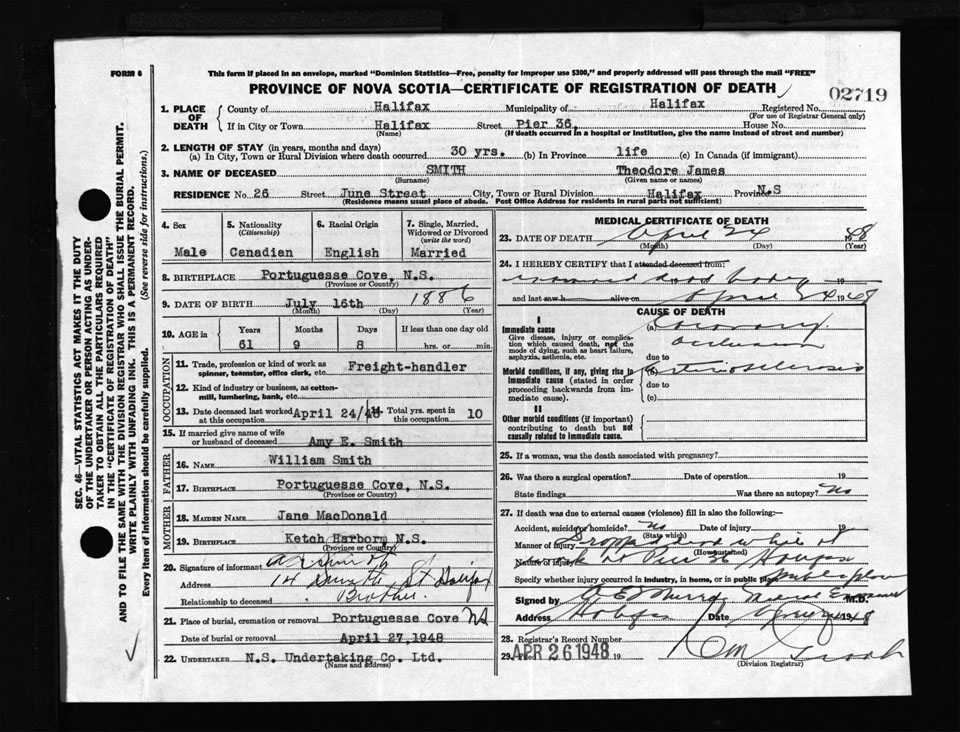 FORM 6
This form if placed in an envelope, marked "Dominion Statistics—Free, penalty for improper use $300," and properly addressed will pass through the mail "FREE"
PROVINCE OF NOVA SCOTIA—CERTIFICATE OF REGISTRATION OF DEATH
02719
1. PLACE OF DEATH
County of Halifax Municipality of Halifax Registered No.
(For use of Registrar General only)
If in City or Town Halifax Street Pier 36, House No.
(Name) (If death occurred in a hospital or institution, give the name instead of street and number)
2. LENGTH OF STAY (in years, months and days)
(a) In City, Town or Rural Division where death occurred 30 yrs. (b) In Province life (c) In Canada (if immigrant)
3. NAME OF DECEASED SMITH Theodore James
(Surname) (Given name or names)
RESIDENCE No. 26 Street June Street City, Town or Rural Division Halifax Province N.S
(Residence means usual place of abode. Post Office Address for residents in rural parts not sufficient)
4. Sex Male
5. Nationality (Citizenship) Canadian
6. Racial Origin English
7. Single, Married, Widowed or Divorced (write the word) Married
8. BIRTHPLACE Portuguesse Cove, N.S.
(Province or Country)
9. DATE OF BIRTH July 16th 1886
(Month) (Day) (Year)
10. AGE in Years Months Days If less than one day old
61 9 8 hrs. or min.
OCCUPATION
11. Trade, profession or kind of work as spinner, teamster, office clerk, etc. Freight-handler
12. Kind of industry or business, as cotton-mill, lumbering, bank, etc.
13. Date deceased last worked at this occupation April 24/48 14. Total yrs. spent in this occupation 10
15. If married give name of wife or husband of deceased Amy E. Smith
FATHER
16. NAME William Smith
17. BIRTHPLACE Portuguesse Cove, N.S.
(Province or Country)
MOTHER
18. MAIDEN NAME Jane MacDonald
19. BIRTHPLACE Ketch Harborm N.S.
(Province or Country)
20. Signature of informant Smith
Address 14 St Halifax
Relationship to deceased Brother
21. Place of burial, cremation or removal Portuguesse Cove NS
Date of burial or removal April 27,1948
22. UNDERTAKER N.S. Undertaking Co. Ltd.
(Name and address)
MEDICAL CERTIFICATE OF DEATH
23. DATE OF DEATH April 24 1948
(Month) (Day)
24. I HEREBY CERTIFY that I attended deceased from:
examined dead body 19
and last saw h alive on April 24 1948
CAUSE OF DEATH
I
Immediate cause
Give disease, injury or complication which caused death, not the mode of dying, such as heart failure, asphyxia, asthenia, etc.
(a) Coronary
occlusion
due to
Morbid conditions, if any, giving rise to immediate cause (stated in order proceeding backwards from immediate cause).
(b) arteriosclerosis
due to
(c)
II
Other morbid conditions (if important) contributing to death but not causally related to immediate cause.
25. If a woman, was the death associated with pregnancy?
26. Was there a surgical operation? Date of operation 19
State findings Was there an autopsy? No
27. If death was due to external causes (violence) fill in also the following:—
Accident, suicide or homicide? No Date of injury 19
(State which)
Manner of injury Dropped dead while at
(How sustained)
Nature of injury work at Pier 36 Halifax
Specify whether injury occurred in industry, in home, or in public place public place
Signed by Murray Medical Examiner M.D.
Address Halifax Date 1948
28. Registrar's Record Number
29. Filed APR 26 1948 19
(Division Registrar)
SEC. 46—VITAL STATISTICS ACT MAKES IT THE DUTY
OF THE UNDERTAKER OR PERSON ACTING AS UNDER-
TAKER TO OBTAIN ALL THE PARTICULARS REQUIRED
IN THE "CERTIFICATE OF REGISTRATION OF DEATH"
AND TO FILE THE SAME WITH THE DIVISION REGISTRAR WHO SHALL ISSUE THE BURIAL PERMIT.
WRITE PLAINLY WITH UNFADING INK. THIS IS A PERMANENT RECORD.
Every item of information should be carefully supplied. (See reverse side for instructions.)